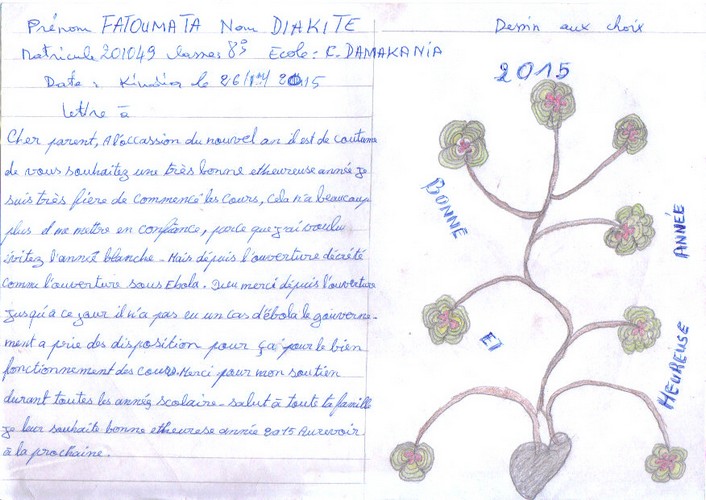 Prénom FATOUMATA Nom DIAKITE
Matricule 201049 classes 8è Ecole: C. DAMAKANIA
Date: Kindia le 26/ 2015
lettre à
Cher parent, A l'occassion du nouvel an il est de coutume
de vous souhaitez une très bonne et heureuse année Je
suis très fière de commencé les cours, Cela n'a beaucoup
plus d me mettre en confiance, parce que j'ai voulu
évitez l'année blanche - Mais dépuis l'ouverture décrété
comme l'ouverture sous Ebola. Dieu merci dépuis l'ouverture
jusqu'à ce jour il n'a pas eu un cas d'ébola le gouverne-
ment a prie des disposition pour ça pour le bien
fonctionnement des cours. Merci pour mon soutien
durant toutes les années scolaire - salut à toute ta famille
je leur souhaite bonne et heurese année 2015 Aurevoir
à la prochaine.
Dessin aux choix
2015
BONNE
ET
HEUREUSE
ANNÉE